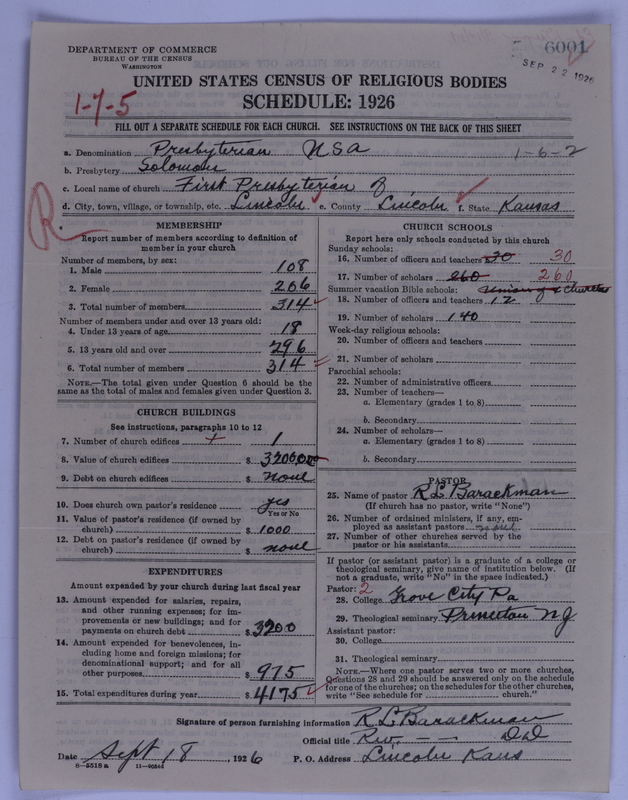 DEPARTMENT OF COMMERCE
BUREAU OF THE CENSUS
WASHINGTON
6001
SEP 22 1926
UNITED STATES CENSUS OF RELIGIOUS BODIES
1-7-5
SCHEDULE: 1926
FILL OUT A SEPARATE SCHEDULE FOR EACH CHURCH. SEE INSTRUCTIONS ON THE BACK OF THIS SHEET
a. Denomination Presbyterian USA 1-6-2
b. Presbytery Solomon
c. Local name of church First Presbyterian of
d. City, town, village, or township, etc. Lincoln e. County Lincoln f. State Kansas
R
MEMBERSHIP
Report number of members according to definition of member in your church
Number of members, by sex:
1. Male 108
2. Female 206
3. Total number of members 314
Number of members under and over 13 years old:
4. Under 13 years of age 18
5. 13 years old and over 296
6. Total number of members 314
NOTE.—The total given under Question 6 should be the
same as the total of males and females given under Question 3.
CHURCH BUILDINGS
See instructions, paragraphs 10 to 12
7. Number of church edifices 1
8. Value of church edifices $ 32000.00
9. Debt on church edifices $ none
10. Does church own pastor's residence yes
Yes or No
11. Value of pastor's residence (if owned by
church) $ 1000
12. Debt on pastor's residence (if owned by
church) $ none
EXPENDITURES
Amount expended by your church during last fiscal year
13. Amount expended for salaries, repairs,
and other running expenses; for im-
provements or new buildings; and for
payments on church debt $ 3200
14. Amount expended for benevolences, in-
cluding home and foreign missions; for
denominational support; and for all
other purposes $ 975
15. Total expenditures during year $ 4175
CHURCH SCHOOLS
Report here only schools conducted by this church
Sunday schools:
16. Number of officers and teachers 30 30
17. Number of scholars 260 260
Summer vacation Bible schools: union of 2 churches
18. Number of officers and teachers 12
19. Number of scholars 140
Week-day religious schools:
20. Number of officers and teachers
21. Number of scholars
Parochial schools:
22. Number of administrative officers
23. Number of teachers—
a. Elementary (grades 1 to 8)
b. Secondary
24. Number of scholars—
a. Elementary (grades 1 to 8)
b. Secondary
PASTOR
25. Name of pastor R L Barackman
(If church has no pastor, write "None")
26. Number of ordained ministers, if any, em-
ployed as assistant pastors none
27. Number of other churches served by the
pastor or his assistants
If pastor (or assistant pastor) is a graduate of a college or
theological seminary, give name of institution below. (If
not a graduate, write "No" in the space indicated.)
Pastor: 2
28. College Grove City Pa
29. Theological seminary Princeton NJ
Assistant pastor:
30. College
31. Theological seminary
NOTE.—Where one pastor serves two or more churches,
Questions 28 and 29 should be answered only on the schedule
for one of the churches; on the schedules for the other churches,
write "See schedule for church."
Signature of person furnishing information R L Barackman
Official title Rev. DD
Date Sept 18, 1926 P. O. Address Lincoln Kans
8-5518a 11-40544